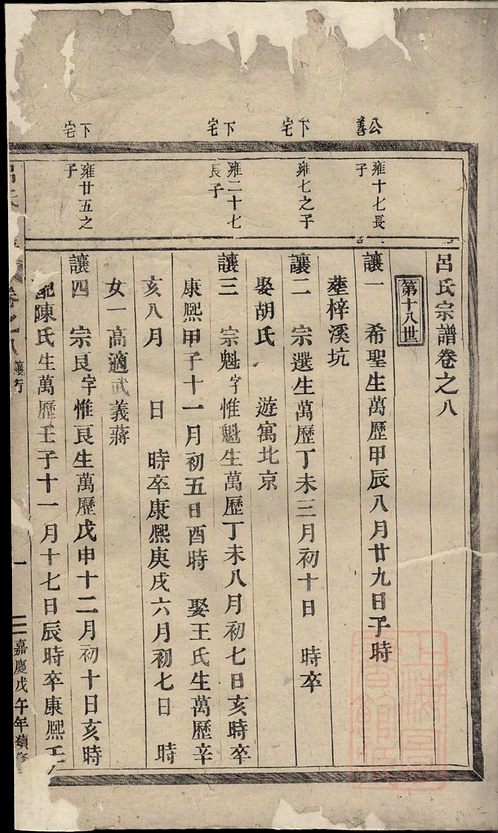 呂氏宗譜卷之八
第十八世
公善
雍十七長子
讓一 希聖生萬歷甲辰八月廿九日子時
葬梓溪坑
下宅
雍七之子
讓二 宗選生萬歷丁未三月初十日 時卒
娶胡氏 遊寓北京
下宅
雍二十七長子
讓三 宗魁字惟魁生萬歷丁未八月初七日亥時卒
康熙甲子十一月初五日酉時 娶王氏生萬歷辛
亥八月 日 時卒康熙庚戌六月初七日 時
女一高適武義蔣
下宅
雍廿五之子
讓四 宗良字惟良生萬歷戊申十二月初十日亥時
配陳氏生萬歷壬子十一月十七日辰時卒康熙壬
卷之八 讓行
一
嘉慶戊午年